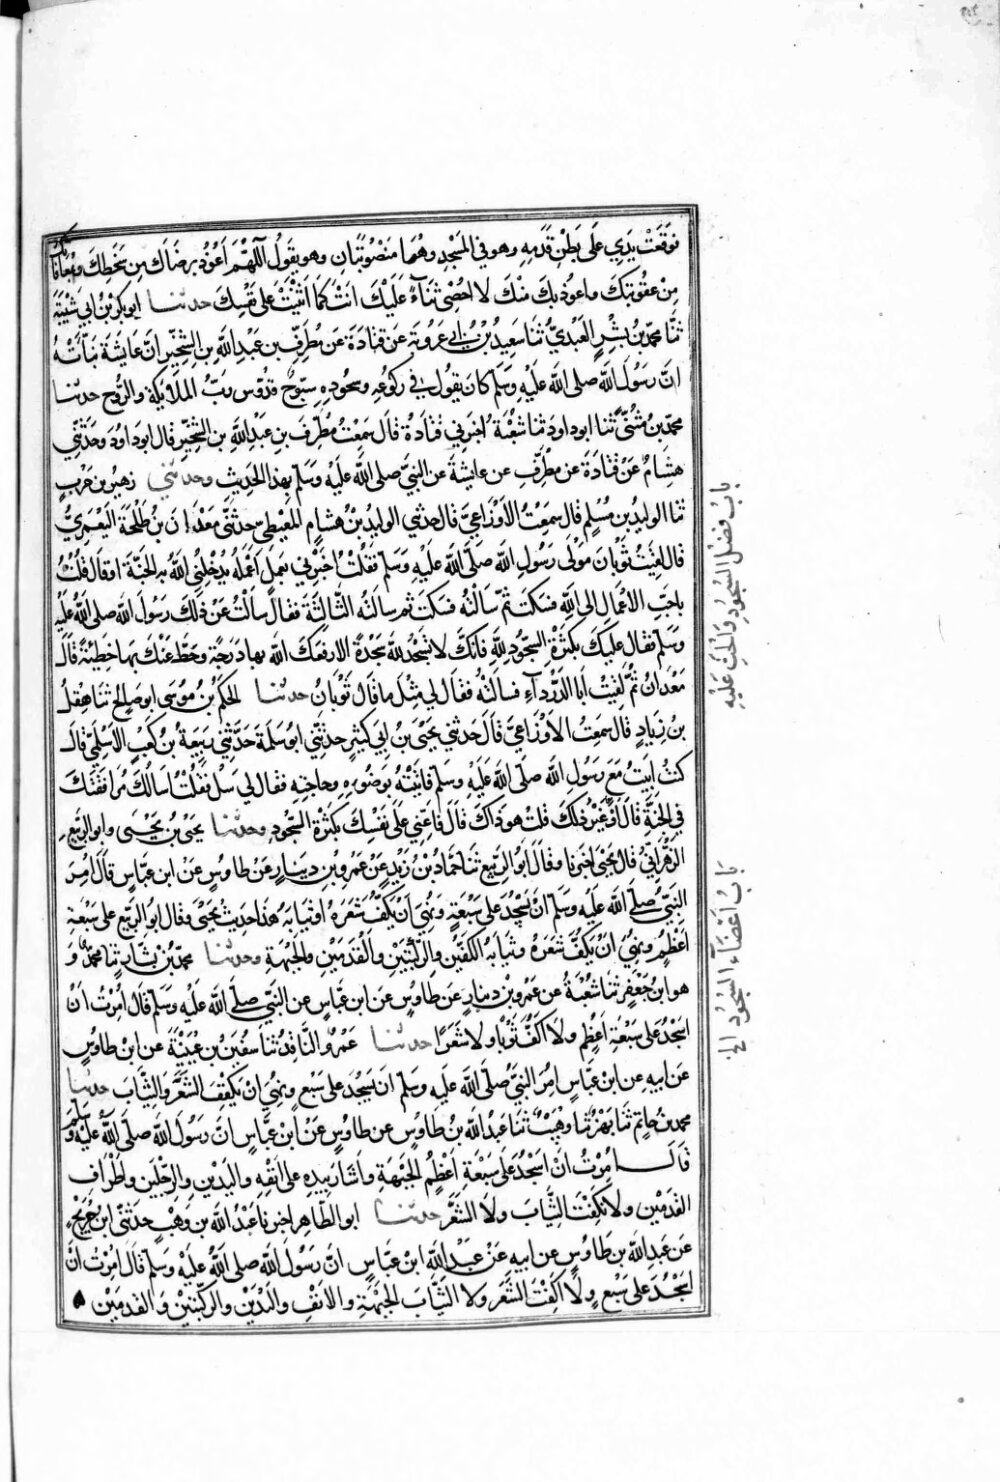 فوقعت يدي على بطن قدمه وهو في المسجد وهما منصوبتان وهو يقول اللهم اعوذ برضاك من سخطك وبمعافاتك
من عقوبتك واعوذ بك منك لا احصي ثناء عليك انت كما اثنيت على نفسك حدثنا ابو بكر بن ابي شيبة
ثنا محمد بن بشر العبدي ثنا سعيد بن ابي عروبة عن قتادة عن مطرف بن عبد الله بن الشخير ان عايشة نبأته
ان رسول الله صلى الله عليه وسلم كان يقول في ركوعه وسجوده سبوح قدوس رب الملايكة والروح حدثنا
محمد بن مثنى ثنا ابو داود ثنا شعبة اخبرني قتادة قال سمعت مطرف بن عبد الله بن الشخير قال ابو داود وحدثني
هشام عن قتادة عن مطرف عن عايشة عن النبي صلى الله عليه وسلم بهذا الحديث وحدثني زهير بن حرب
ثنا الوليد بن مسلم قال سمعت الاوزاعي قال حدثني الوليد بن هشام المعيطي حدثني معدان بن طلحة اليعمري
قال لقيت ثوبان مولى رسول الله صلى الله عليه وسلم فقلت اخبرني بعمل اعمله يدخلني الله به الجنة او قال قلت
باحب الاعمال الى الله فسكت ثم سالته فسكت ثم سالته الثالثة فقال سالت عن ذلك رسول الله صلى الله عليه
وسلم فقال عليك بكثرة السجود لله فانك لا تسجد لله سجدة الا رفعك الله بها درجة وحط عنك بها خطيئة قال
معدان ثم لقيت ابا الدرداء فسالته فقال لي مثل ما قال ثوبان حدثنا الحكم بن موسى ابو صالح ثنا هقل
بن زياد قال سمعت الاوزاعي قال حدثني يحيى بن ابي كثير حدثني ابو سلمة حدثني ربيعة بن كعب الاسلمي قال
كنت ابيت مع رسول الله صلى الله عليه وسلم فاتيته بوضوءه وحاجته فقال لي سل فقلت اسالك مرافقتك
في الجنة قال اوغير ذلك قلت هو ذاك قال فاعني على نفسك بكثرة السجود وحدثنا يحيى بن يحيى وابو الربيع
الزهراني قال يحيى اخبرنا وقال ابو الربيع ثنا حماد بن زيد عن عمرو بن دينار عن طاوس عن ابن عباس قال امر
النبي صلى الله عليه وسلم ان يسجد على سبعة ونهي ان يكف شعره او ثيابه هذا حديث يحيى وقال ابو الربيع على سبعة
اعظم ونهي ان يكف شعره وثيابه الكفين والركبتين والقدمين والجبهة وحدثنا محمد بن بشار ثنا محمد و
هو ابن جعفر ثنا شعبة عن عمرو بن دينار عن طاوس عن ابن عباس عن النبي صلى الله عليه وسلم قال امرت ان
اسجد على سبعة اعظم ولا اكف ثوبا ولا شعرا حدثنا عمرو الناقد ثنا سفين بن عيينة عن ابن طاوس
عن ابيه عن ابن عباس امر النبي صلى الله عليه وسلم ان يسجد على سبع ونهي ان يكفت الشعر والثياب حدثنا
محمد بن حاتم ثنا بهز ثنا وهيب ثنا عبد الله بن طاوس عن طاوس عن ابن عباس ان رسول الله صلى الله عليه وسلم
قال امرت ان اسجد على سبعة اعظم الجبهة واشار بيده على انفه واليدين والرجلين واطراف
القدمين ولا نكفت الثياب ولا الشعر حدثنا ابو الطاهر اخبرنا عبد الله بن وهب حدثني ابن جريج
عن عبد الله بن طاوس عن ابيه عن عبد الله ابن عباس ان رسول الله صلى الله عليه وسلم قال امرت ان
اسجد على سبع ولا اكفت الشعر ولا الثياب الجبهة والانف واليدين والركبتين والقدمين
باب فضل السجود والحث عليه
باب اعضاء السجود الخ